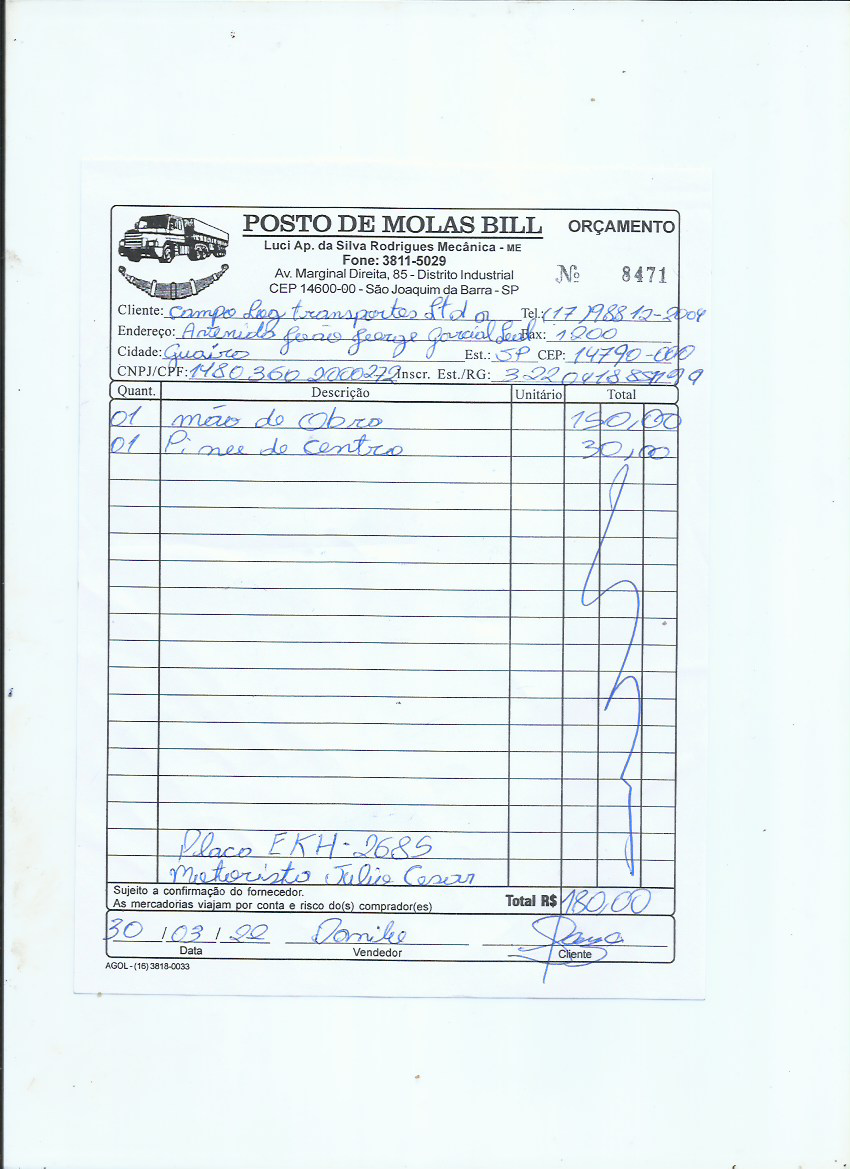 POSTO DE MOLAS BILL ORÇAMENTO
Luci Ap. da Silva Rodrigues Mecânica - ME
Fone: 3811-5029
Av. Marginal Direita, 85 - Distrito Industrial
Nº 8471
CEP 14600-00 - São Joaquim da Barra - SP
Cliente: Campo Log transportes Ltda Tel.: (17) 98812-2004
Endereço: João George Garcia Fax: 1200
Cidade: Guaíra Est.: SP CEP: 14790-000
CNPJ/CPF: Inscr. Est./RG:
Quant. Descrição Unitário Total
01 mão de Obra 150,00
01 Pi de Centro 30,00
Placa EKH-2685
Motorista Julio Cesar
Sujeito a confirmação do fornecedor.
As mercadorias viajam por conta e risco do(s) comprador(es) Total R$ 180,00
30 / 03 / 22 Danilo
Data Vendedor Cliente
AGOL - (16) 3818-0033